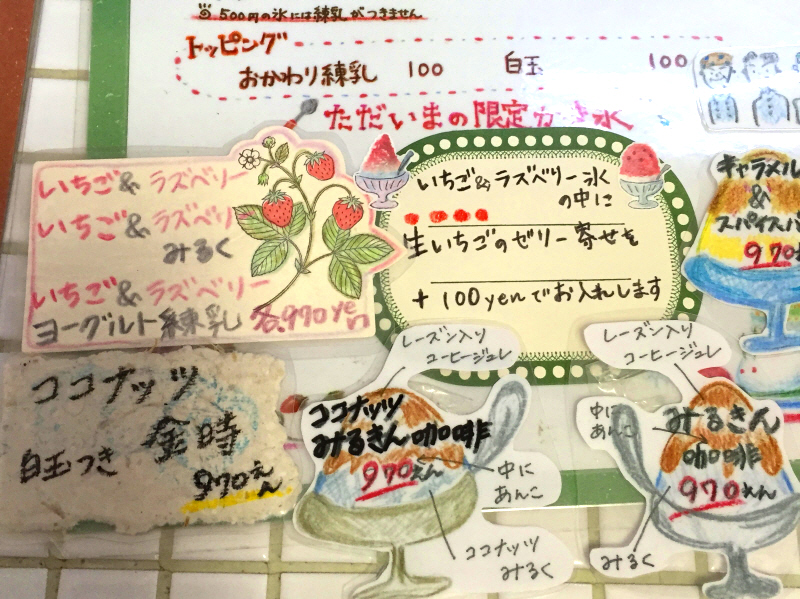 500円の氷には練乳がつきません
トッピング
おかわり練乳 100 白玉 100
ただいまの限定かき氷
いちご&ラズベリー
いちご&ラズベリー
みるく
いちご&ラズベリー
ヨーグルト練乳 各970yen
いちご&ラズベリー氷
の中に
生いちごのゼリー寄せを
+100yenでお入れします
キャラメル
&
スパイス
970
ココナッツ
金時
白玉つき
970えん
レーズン入り
コーヒージュレ
ココナッツ
みるきん咖啡
970えん
中に
あんこ
ココナッツ
みるく
レーズン入り
コーヒージュレ
中に
あんこ
みるきん
咖啡
970えん
みるく